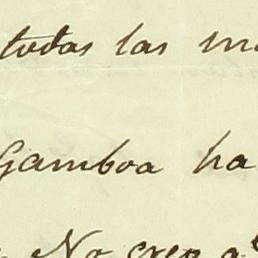 todas las
Gamboa ha
No creo q.e